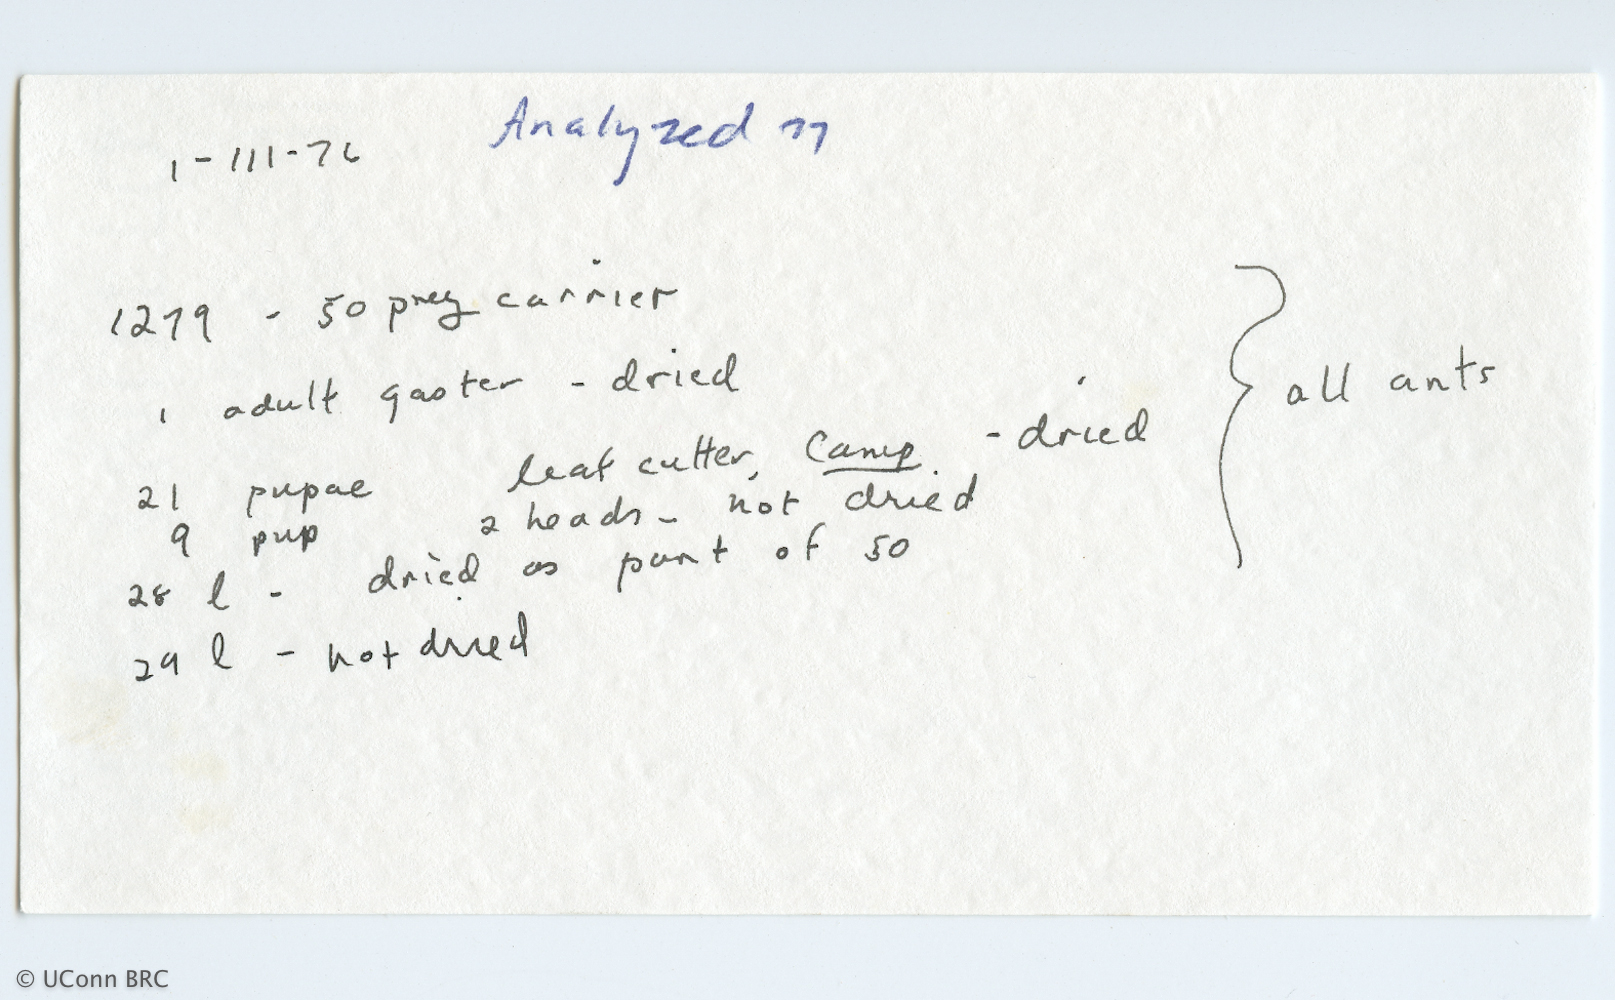 1-III-76
Analyzed 77
1279 - 50 prey carrier
1 adult gaster - dried
all ants
21 pupae leaf cutter, Camp. - dried
9 pup 2 heads - not dried
28 l - dried as part of 50
29 l - not dried
© UConn BRC